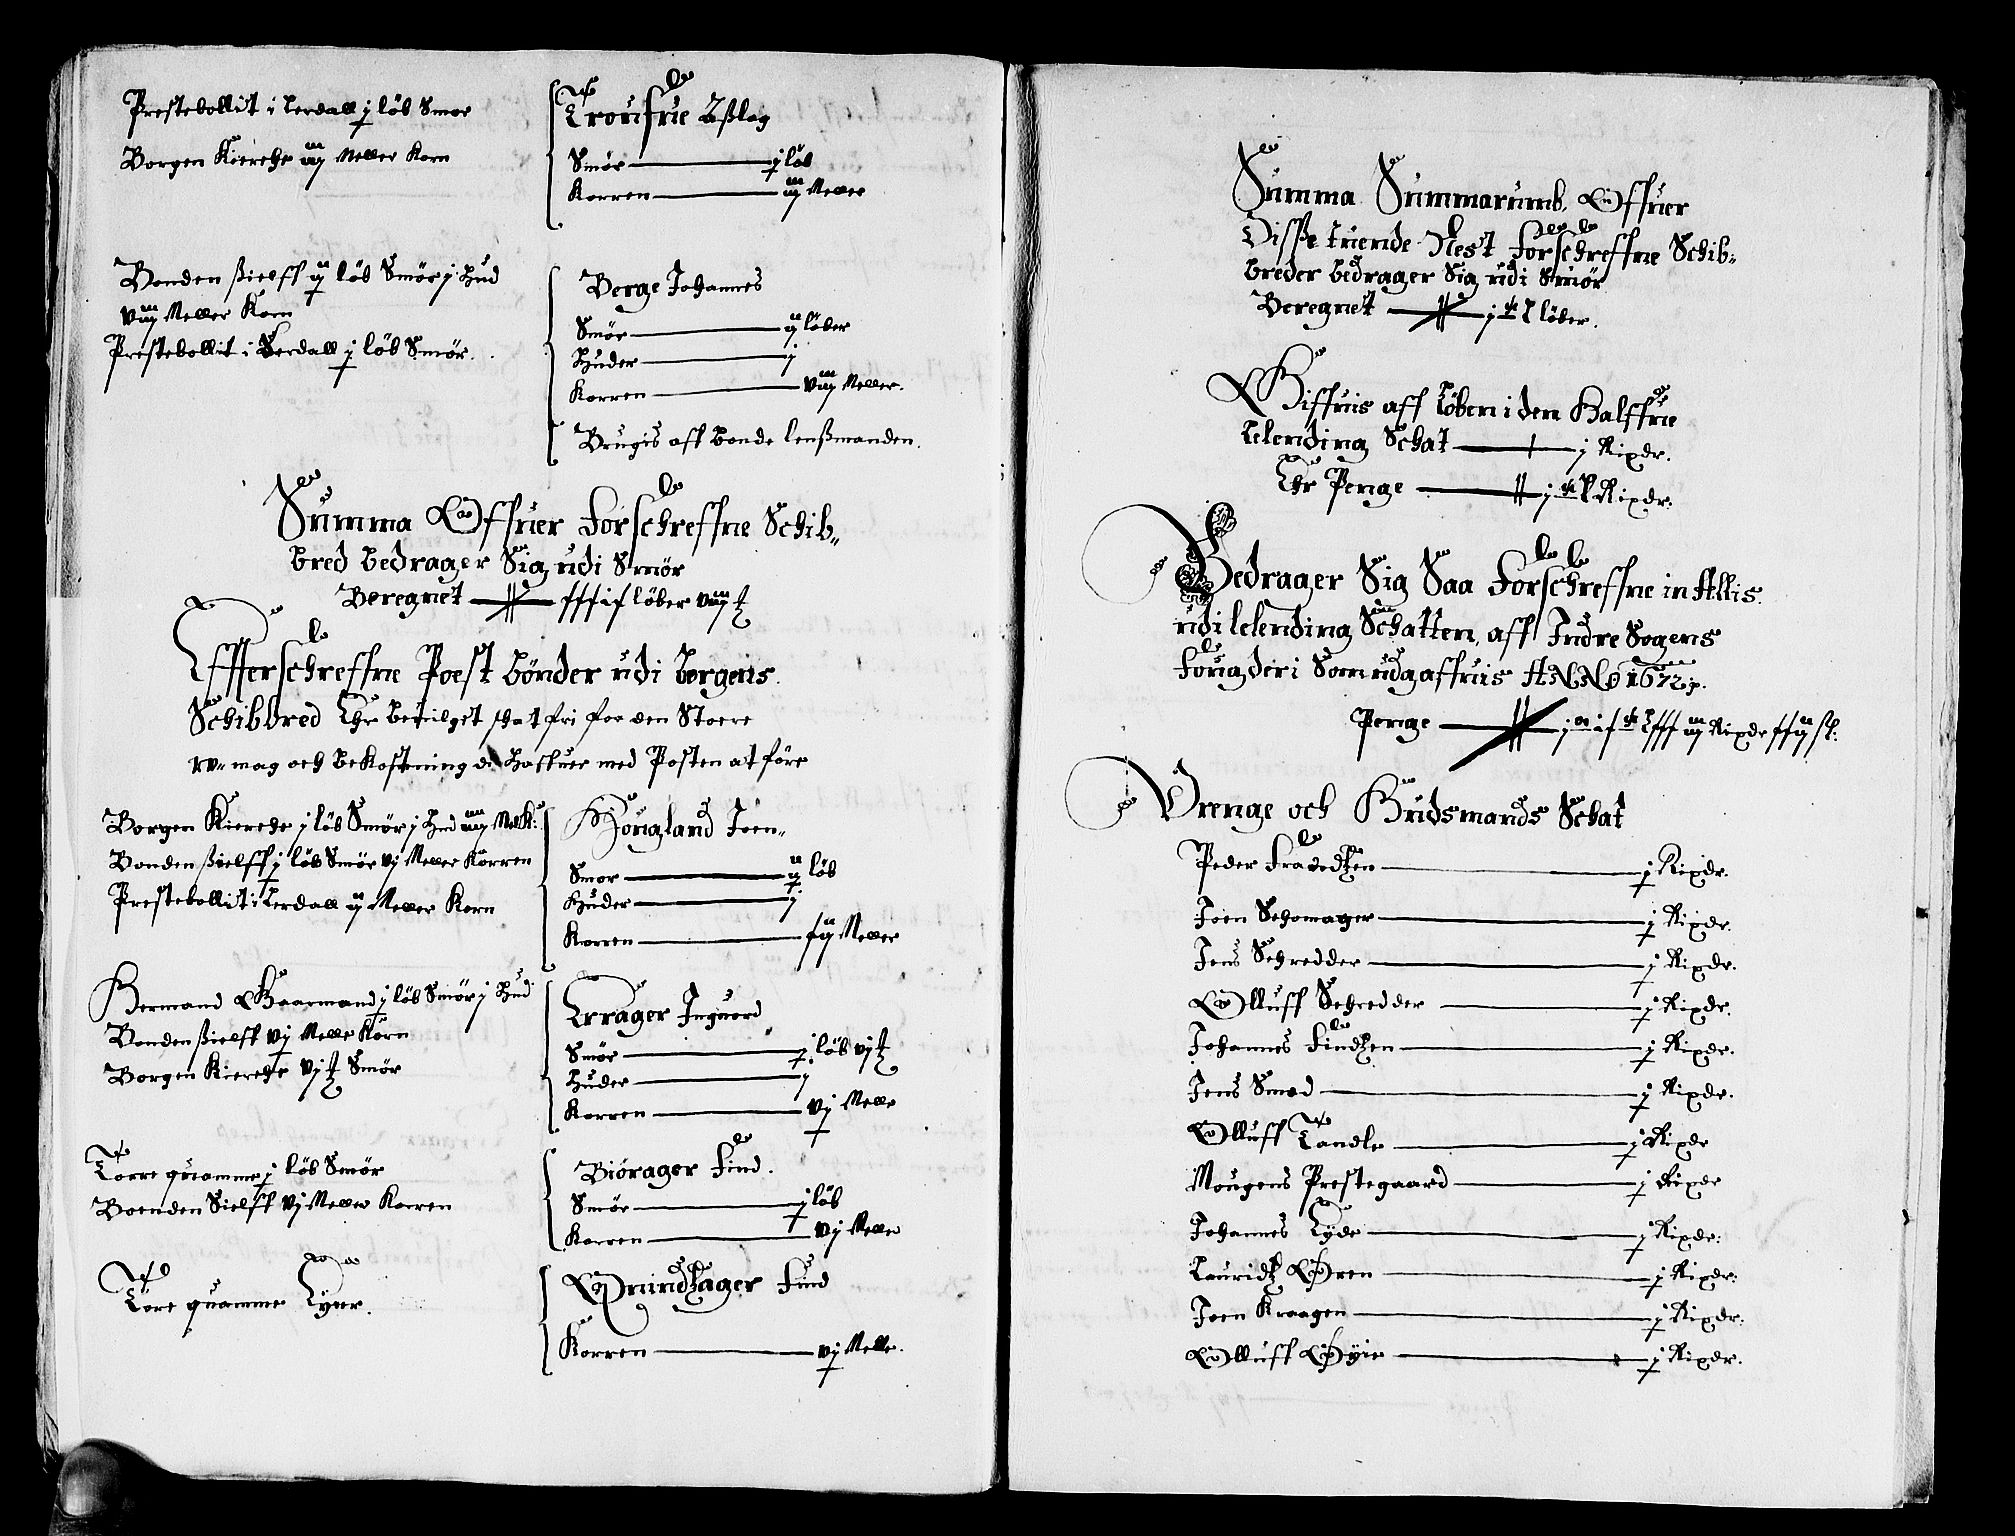 Prestebollit i Lerdall j löb Smor
Borgen Kierche iiij Meller Korn
Trouffrue Aßlag
Smör j löb
Korren iiij Meller
Bonden ßielff ij löb Smör j Hud
viiij Meller Korn
Prestebollit i Lerdall j löb Smör.
Berge Johannes
Smör ij löber
Huder j
Korren viiij Meller.
Brugis aff bonde lenßmanden.
Summa Offuer Forschreffne Schib„
bred bedrager Sig udi Smör
Beregnet löber
Effterschreffne Poest bönder udi borgens
Schibdred Ehr beuilget schat fri for den Stoere
uv„mag och bekostning di haffuer med Posten at före
Borgen Kierche j löb Smör j Hud iiij Mel K:
Bonden ßielff j löb Smör vj Meller Korren
Prestebollit i Lerdall ij Meller Korn
Hougland Joen„
Smor ij löb
Huder j
Korren xij Meller
Hermand Gaarmand j löb Smör j Hud
Bonden ßielff vj Melle Korn
Borgen Kierche vj Smör
Erager Inguord
Smör j löb vj
Huder j
Korren vj Melle
Torre quamme j löb Smör
Boenden Sielff vj Meller Korren
Biörager Find.
Smör j löb
Korren vj Melle
Tore quamme Eyer.
Grundtzager Find
Korren vj Melle.
Summa Summarumb, Offuer
Disße tuende Nest Forschreffne Schib„
breder bedrager Sig udi Smör
Beregnet löber.
Giffuis aff löben i den Halffue
lelending Schat j Rixdr.
Ehr Penge Rixdr:
Bedrager Sig Saa Forschreffne in Allis
udi lelending Schatten, aff Indre Sogens
fougderi Som udgaffuis ANNO 1672.
Penge Rixdr
Drenge och Hudsmands Schat
Peder Fradtzen j Rixdr.
Joen Schomager j Rixdr.
Jens Schredder j Rixdr.
Olluff Schredder j Rixdr.
Johannes Findtzen j Rixdr.
Jens Smed j Rixdr.
Olluff Tandle j Rixdr
Mougens Prestegaard j Rixdr
Johannes Eyde j Rixdr:
Lauridtz Ören j Rixdr:
Joen Kraagen j Rixdr:
Olluff Öyie j Rixdr.